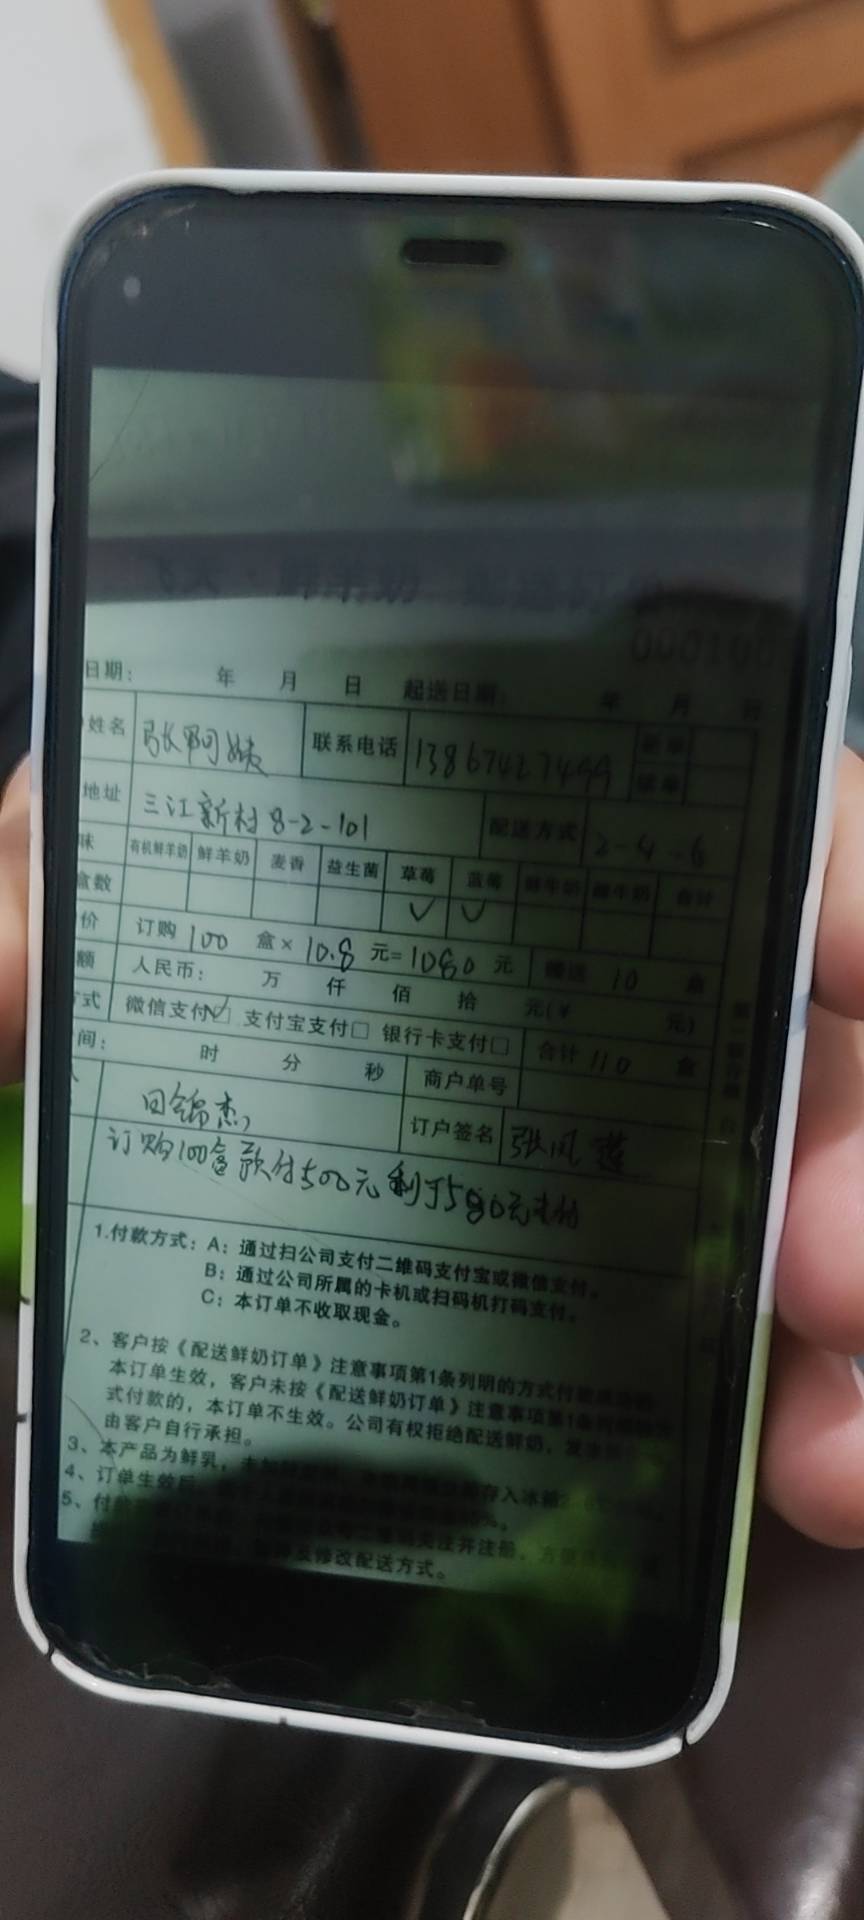 鲜羊奶 配送订单
000100
日期： 年 月 日 起送日期： 年 月 日
姓名 张阿姨 联系电话 13867427499
地址 三江新村8-2-101 配送方式 2-4-6
味 有机鲜羊奶 鲜羊奶 麦香 益生菌 草莓 蓝莓 合计
盒数 ✓ ✓
价 订购 100 盒× 10.8 元= 1080 元 赠送 10 盒
额 人民币： 万 仟 佰 拾 元(¥ 元)
方式 微信支付☑ 支付宝支付□ 银行卡支付□ 合计 110 盒
间： 时 分 秒 商户单号
田锦杰 订户签名 张凤莲
订购100盒预付500元剩下580元
1.付款方式：A：通过扫公司支付二维码支付宝或微信支付。
B：通过公司所属的卡机或扫码机打码支付。
C：本订单不收取现金。
2、客户按《配送鲜奶订单》注意事项第1条列明的方式付款
本订单生效，客户未按《配送鲜奶订单》注意事项第1条
式付款的，本订单不生效。公司有权拒绝配送鲜奶，
由客户自行承担。
3、本产品为鲜乳， 存入冰箱
4、订单生效后
5、付 关注并注册，方
修改配送方式。